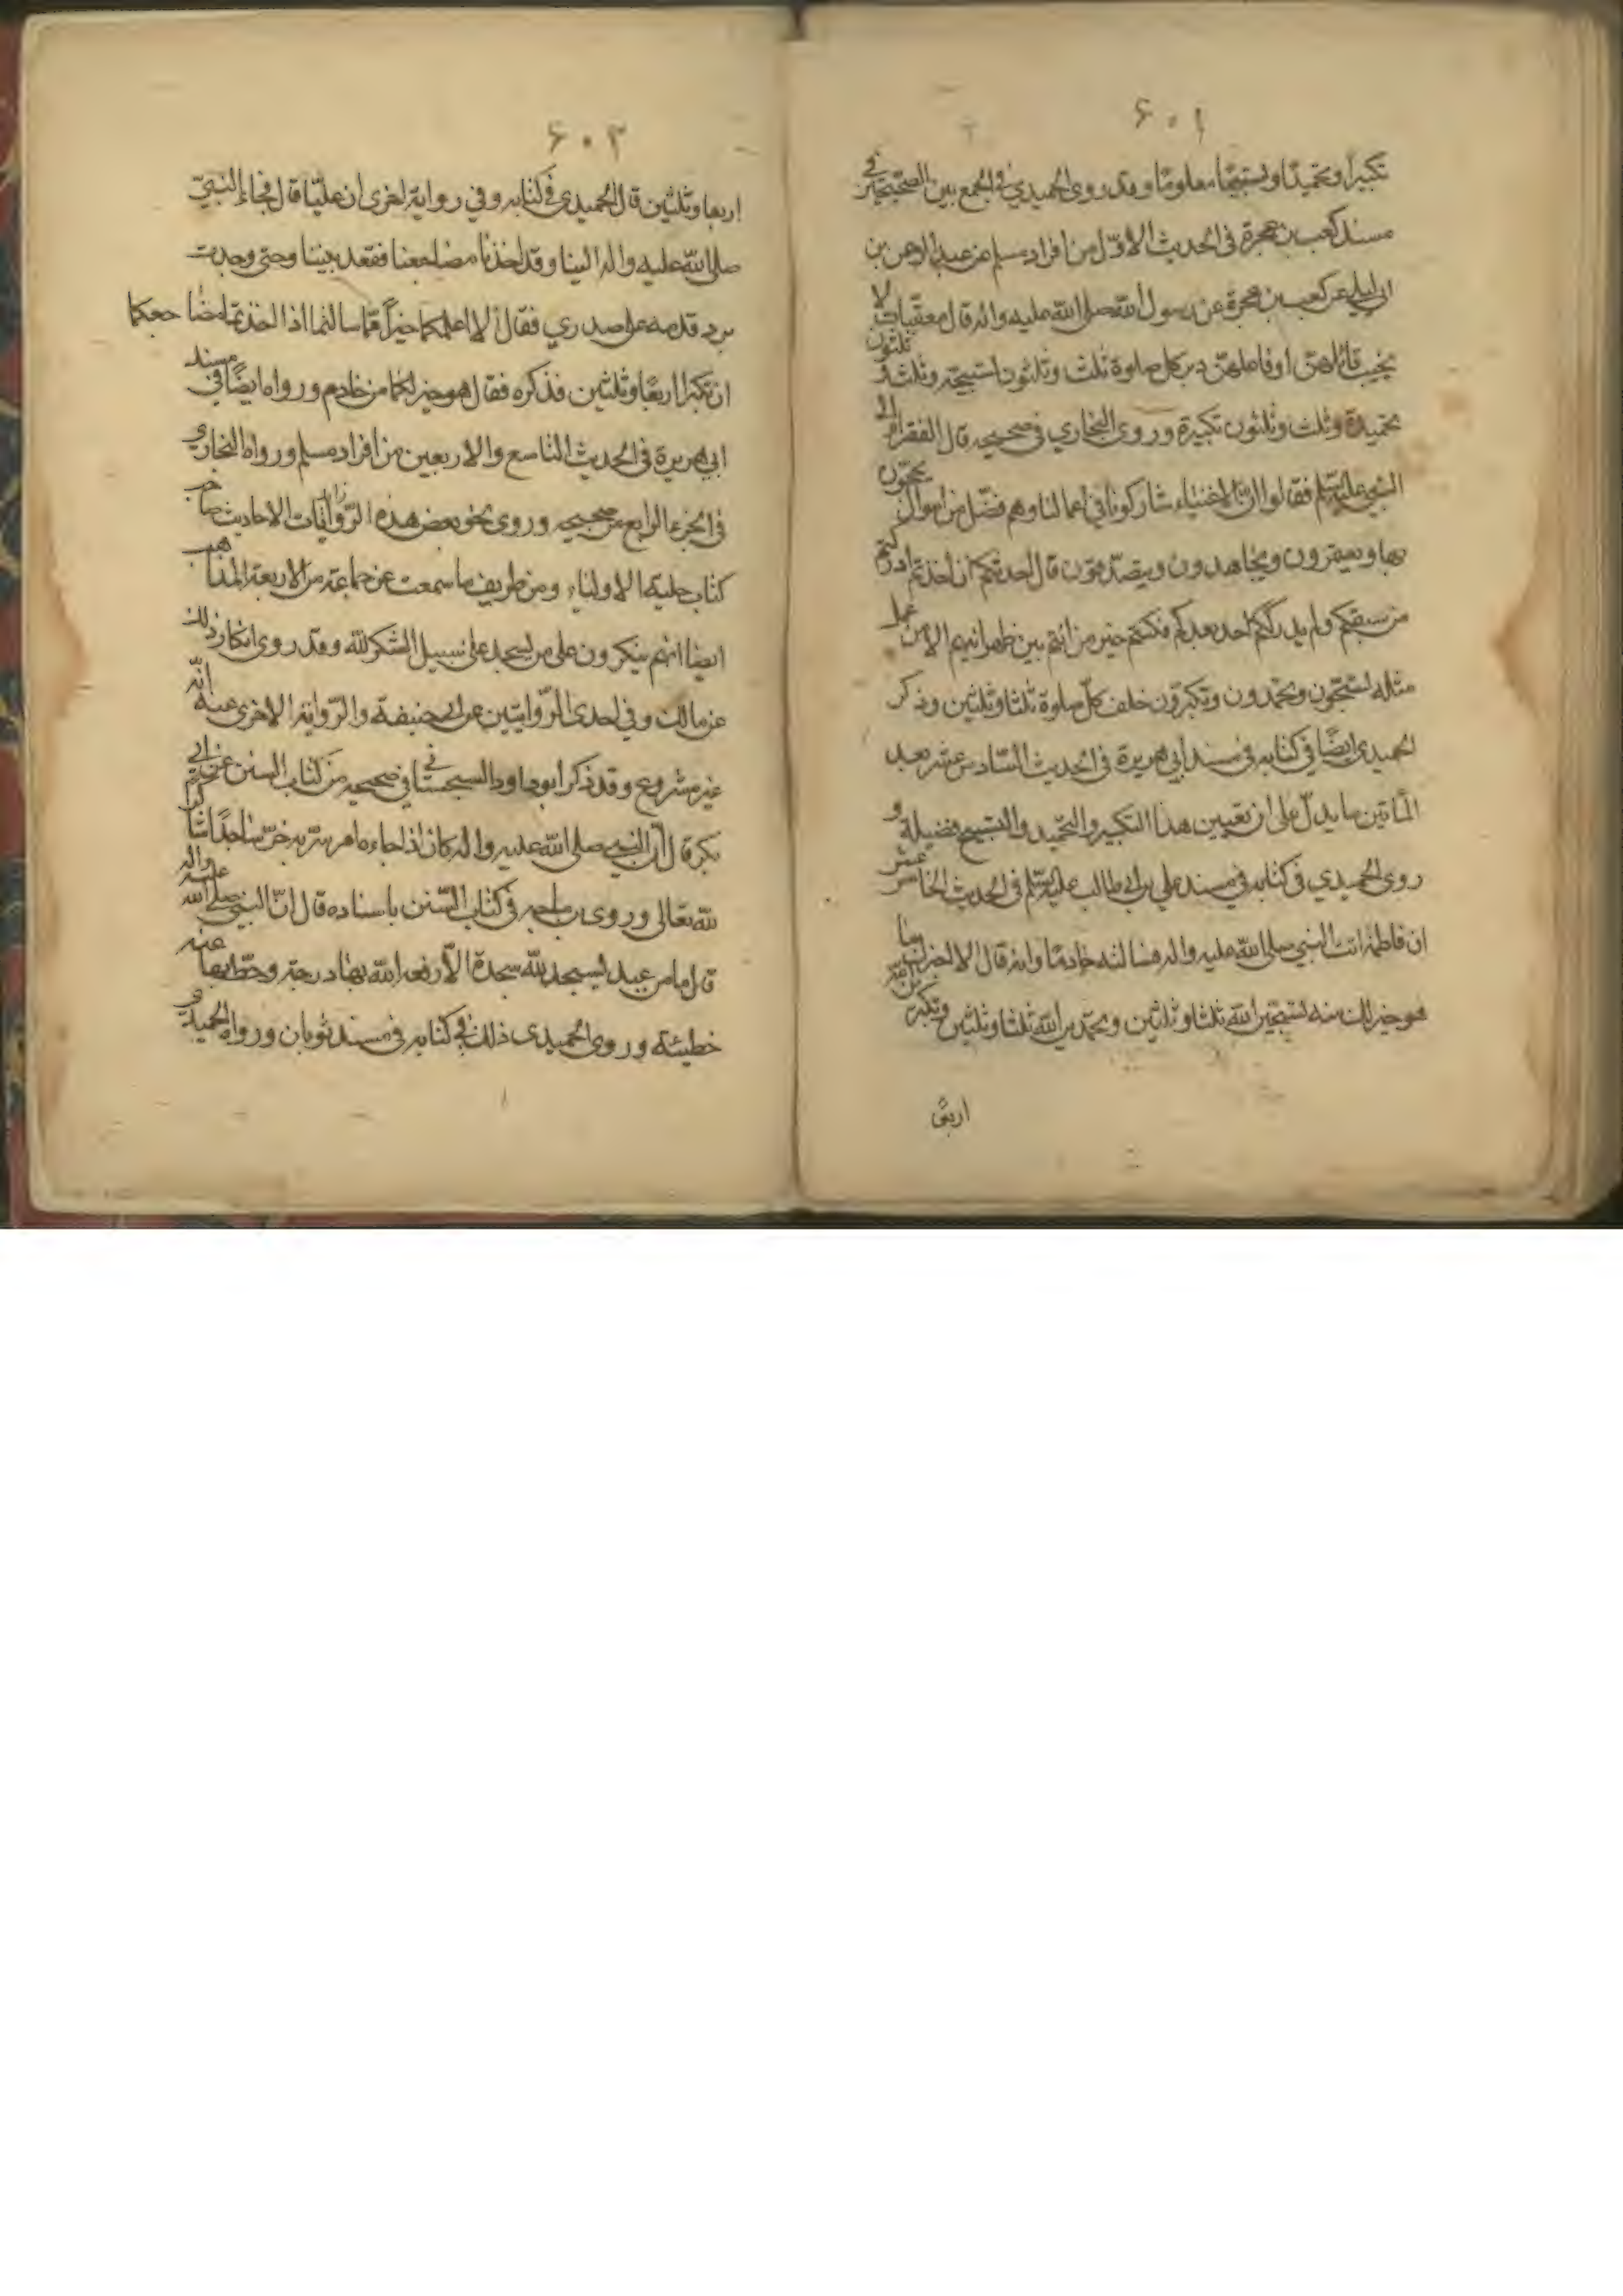 ۶۰۱
تكبيرا وتحميدا وتسبيحا معلوما وقد روى الحميدي في الجمع بين الصحيحين في
مسند كعب بن عجرة في الحديث الاول من افراد مسلم عن عبد الرحمن بن
ابي ليلى عن كعب بن عجرة عن رسول الله صلى الله عليه واله قال معقبات لا
يخيب قائلهن او فاعلهن دبر كل صلوة ثلث وثلثون تسبيحة وثلث و ثلثون
تحميدة وثلث وثلثون تكبيرة وروى البخاري في صحيحه قال الفقراء الى
النبي عليه السلم فقالوا ان الاغنياء شاركونا في اعمالنا وهم فضل من اموال يحجون
بها ويعتمرون ويجاهدون ويتصدقون قال احدثكم ان اخذتم ادركتم
من سبقكم ولم يدرككم احد بعدكم فكنتم خير من انتم بين ظهرانيهم الا من عمل
مثله تسبحون وتحمدون وتكبرون خلف كل صلوة ثلثا وثلثين وذكر
الحميدي ايضا في كتابه في مسند ابي هريرة في الحديث السادس عشر بعد
المأتين ما يدل على ان تعيين هذا التكبير والتحميد والتسبيح فضيلة و
روى الحميدي في كتابه في مسند علي بن ابي طالب عليه السلم في الحديث الخامس عشر
ان فاطمة اتت النبي صلى الله عليه واله فسالته خادما وانه قال الا اخبرك بما
هو خير لك منه تسبحين الله ثلثا وثلثين وتحمدين الله ثلثا وثلثين وتكبرين الله
اربعا
۶۰۲
اربعا وثلثين قال الحميدي في كتابه وفي رواية اخرى ان عليا قال فجاء النبي
صلى الله عليه واله الينا وقد اخذنا مضاجعنا فقعد بيننا وحتى وجدت
برد قدمه على صدري فقال الا اعلمكما خيرا مما سالتما اذا اخذتما مضاجعكما
ان تكبرا اربعا وثلثين فذكره فقال هو خير لكما من خادم ورواه ايضا في مسند
ابي هريرة في الحديث التاسع والاربعين من افراد مسلم ورواه البخاري
في الجزء الرابع من صحيحه وروى نحو بعض هذه الروايات الاحاديث صاحب
كتاب حلية الاولياء ومن طريف ما سمعت عن جماعة من الاربعة المذاهب
ايضا انهم ينكرون على من يسجد على سبيل الشكر لله وقد روى انكار ذلك
عن مالك وفي احدى الروايتين عن ابي حنيفة والرواية الاخرى عنه انه
غير مشروع وقد ذكر ابو داود السجستاني في صحيحه من كتاب السنن عن ابي
بكرة قال ان النبي صلى الله عليه واله كان اذا جاءه امر يسر به خر ساجدا شاكرا
لله تعالى وروى بن ماجه في كتاب السنن باسناده قال ان النبي صلى الله عليه واله
قال ما من عبد يسجد لله سجدة الا رفعه الله بها درجة وحط بها عنه
خطيئة وروى الحميدي ذلك في كتابه في مسند ثوبان ورواه الحميدي